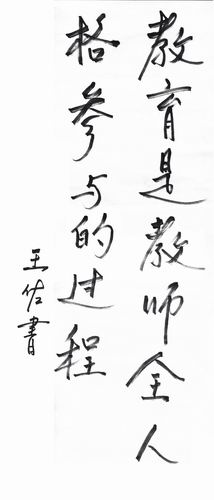 教育是教师全人
格参与的过程
王佑書